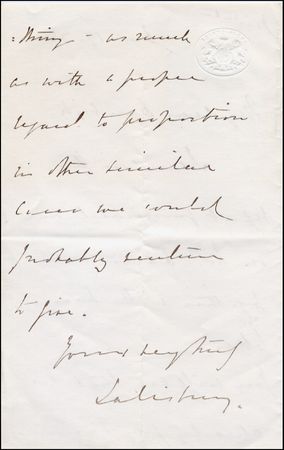 :thing - as much
as with a proper
regard to proportion
in other similar
cases we could
probably venture
to give.
Yours very truly
Salisbury.